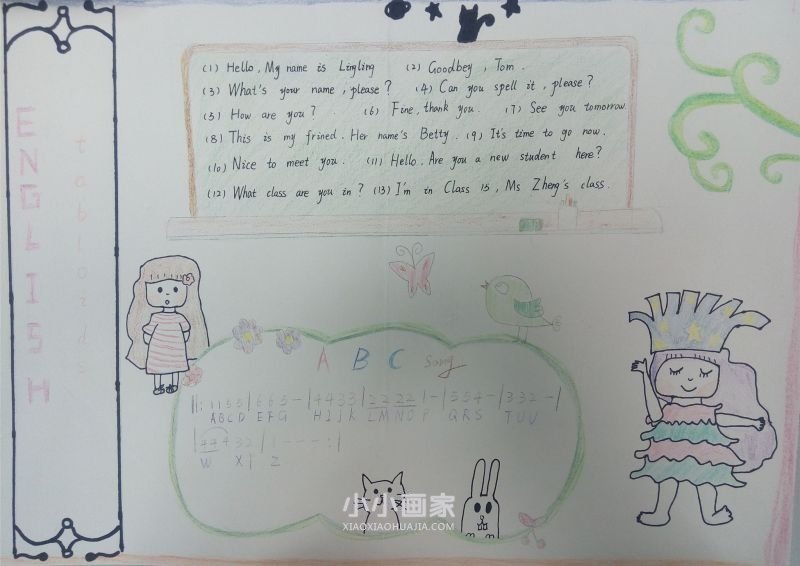 ENGLISH
tabloids
(1) Hello, My name is Lingling (2) Goodbey, Tom.
(3) What's your name, please? (4) Can you spell it, please?
(5) How are you? (6) Fine, thank you. (7) See you tomorrow.
(8) This is my frined. Her name's Betty. (9) It's time to go now.
(10) Nice to meet you. (11) Hello. Are you a new student here?
(12) What class are you in? (13) I'm in Class 15, Ms Zheng's class.
A B C song
‖: 1155 | 665- | 4433 | 2222 1- | 554- | 332- |
ABCD EFG HIJK LMNO P QRS TUV
| 444 32 | 1 - - - :|
W X Z
小小画家
XIAOXIAOHUAJIA.COM